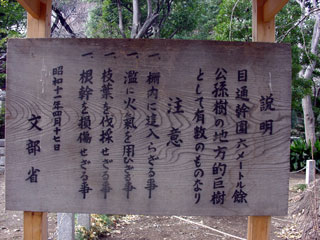 説明
目通幹囲六メートル餘
公孫樹の地方的巨樹
として有数のものなり
注意
一、柵内に達入らざる事
一、濫に火氣を用ひざる事
一、枝葉を伐採せざる事
一、根幹を損傷せざる事
昭和十一年四月十七日
文部省